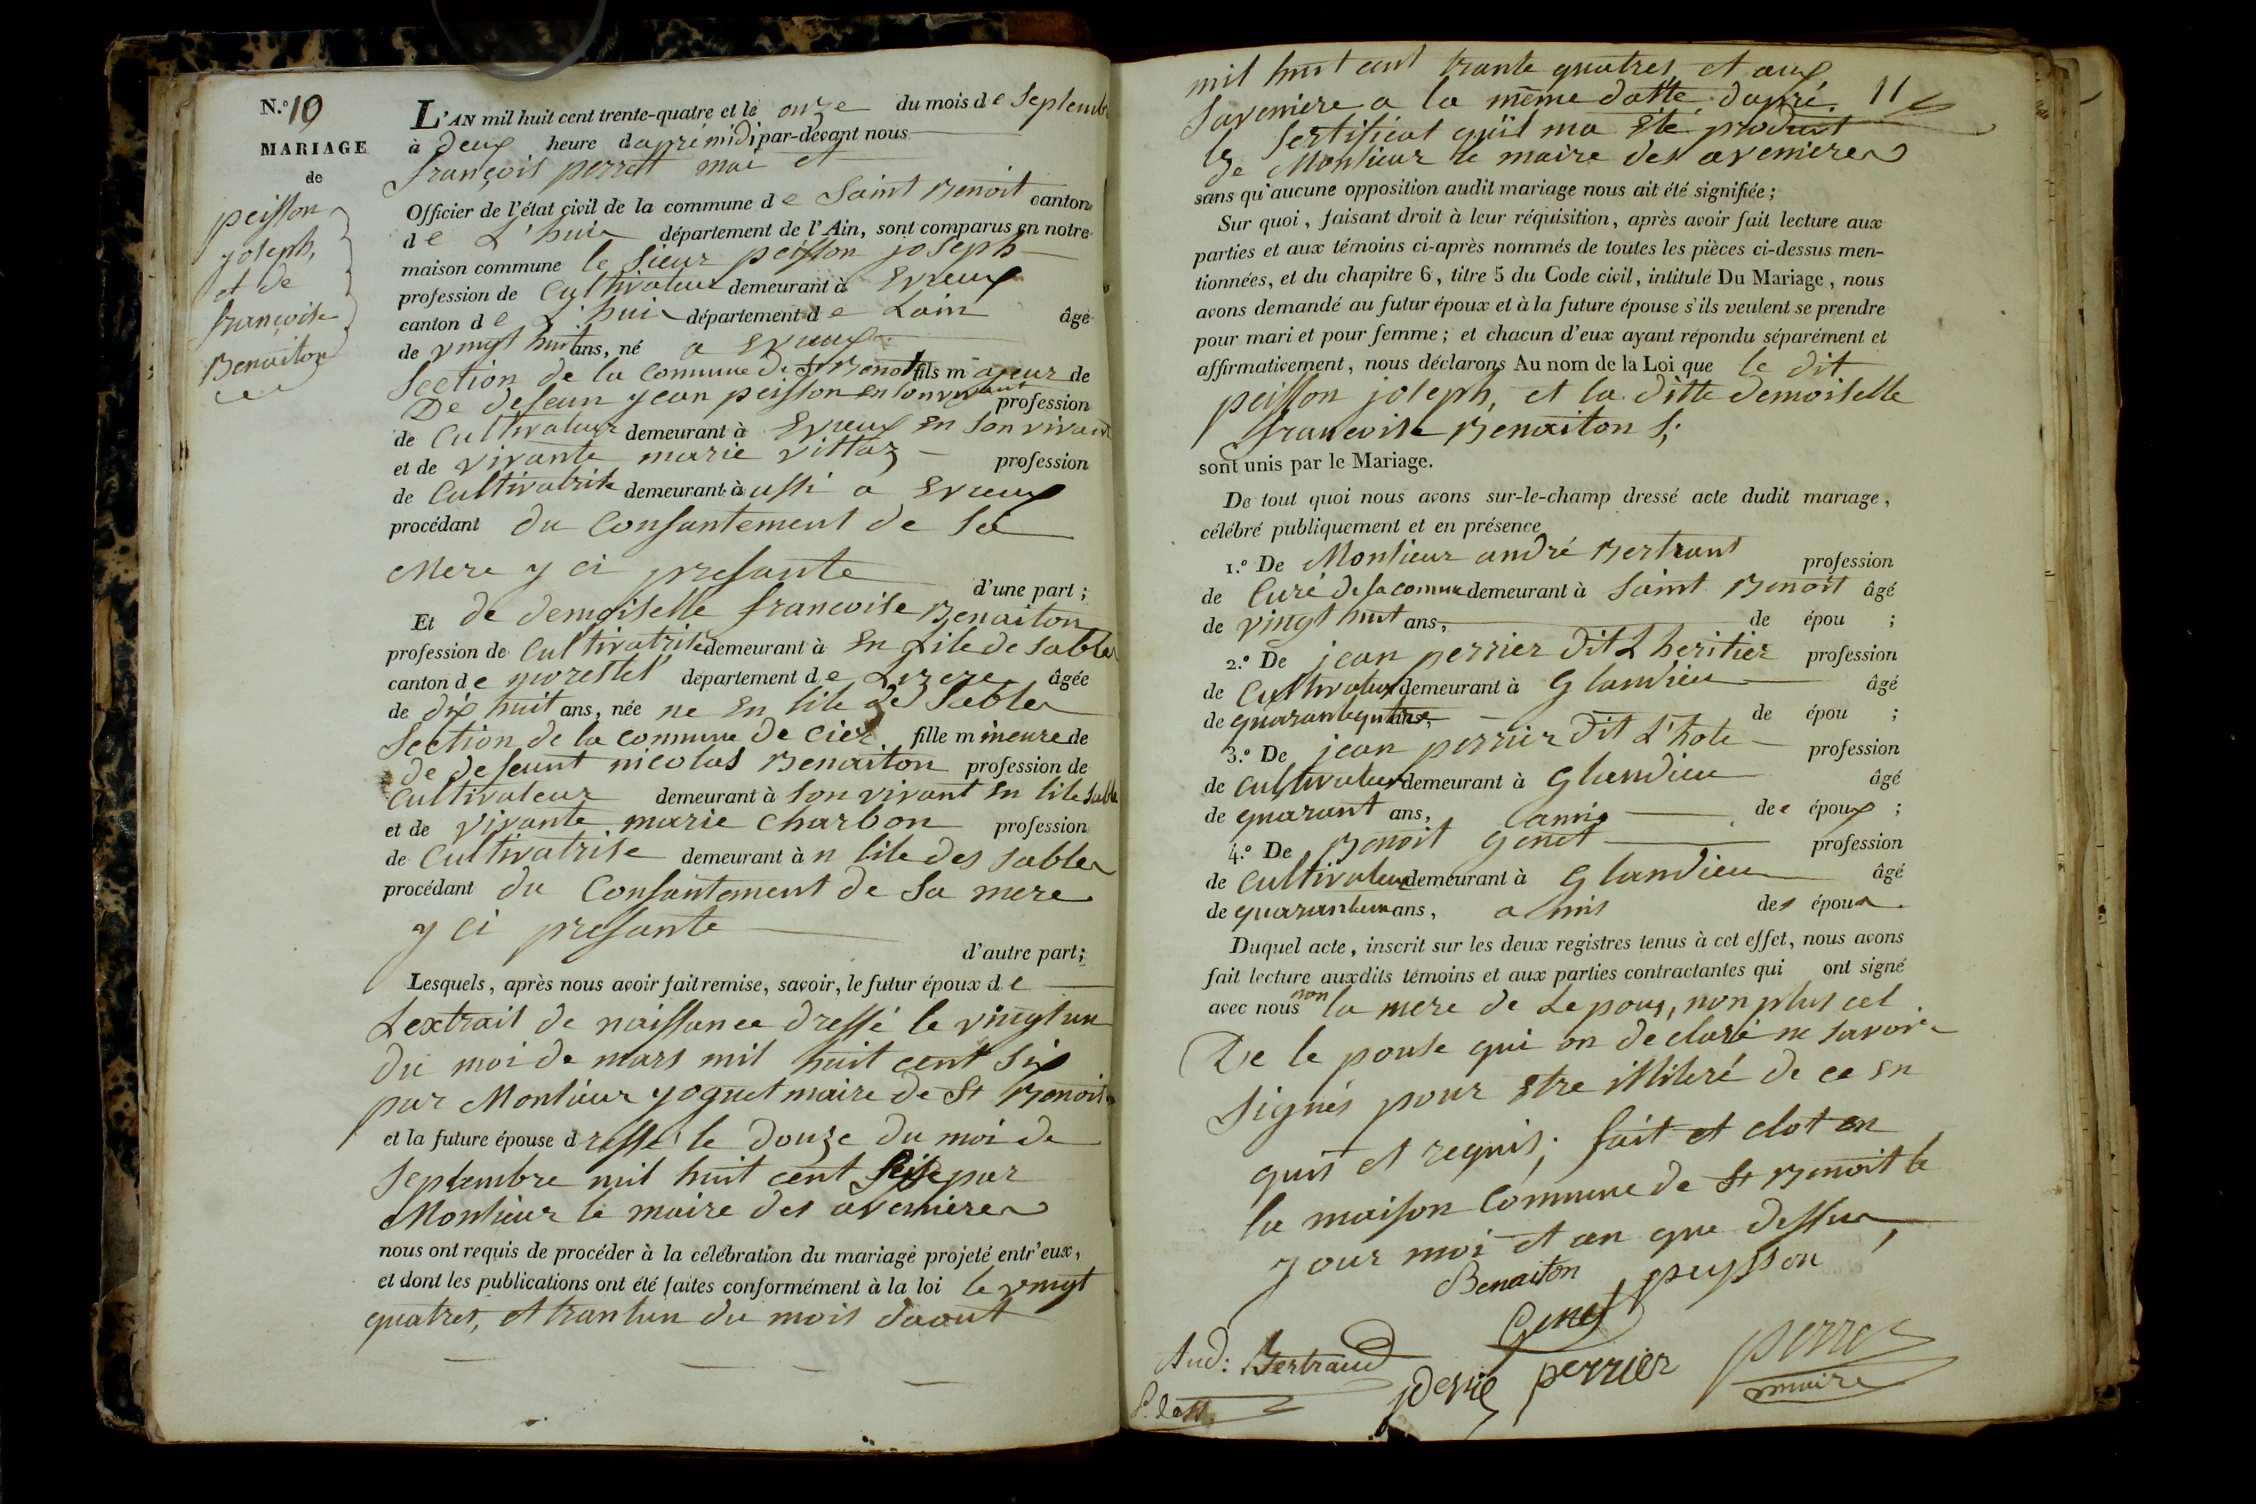 N.º 10
MARIAGE
de
peisson
joseph,
et de
françoise
Benaiton
L'AN mil huit cent trente-quatre et le onze du mois de Septembre
à deux heure daprémidi par-devant nous
françois perret maie et
Officier de l'état civil de la commune de Saint Benoit canton
de L'huis département de l'Ain, sont comparus en notre
maison commune le Sieur peisson joseph
profession de Cultivateur demeurant à Evieux
canton de L'huis département de Lain âgé
de vingt huit ans, né a Evieux
Section de la Commune de St Benoit fils majeur de
De defeun jean peisson en son vivant profession
de Cultivateur demeurant à Evieux en son vivant
et de vivante marie vittoz profession
de Cultivatrise demeurant à ussi a Evieux
procédant du Consantement de sa
Mere y ci presante
d'une part ;
Et de demoiselle francoise Benaiton
profession de Cultivatrise demeurant à En Lile de Sables
canton de morestel département de Lizere âgée
de dix huit ans, née ne En lile de Sables
Section de la Commune de Ciers fille mineure de
de defeunt nicolas Benaiton profession de
Cultivateur demeurant à son vivant en lile sable
et de vivante marie Charbon profession
de Cultivatrise demeurant à n lile des sables
procédant du Consantement de sa mere
y ci presante
d'autre part ;
Lesquels, après nous avoir fait remise, savoir, le futur époux de
Lextrait de naissance dressé le vingt un
du moi de mars mil huit cent six
par Monsieur joguet maire de St Benoit
et la future épouse dressé le douze du moi de
Septembre mil huit cent seise par
Monsieur le maire des avenieres
nous ont requis de procéder à la célébration du mariage projeté entr'eux,
et dont les publications ont été faites conformément à la loi le vingt
quatres, et trantun du mois daout
mil huit cent trante quatres et aux
Saveniere a la même datte dapré 11
le Sertificat qu'il ma Eté produit
de Monsieur le maire des avenieres
sans qu'aucune opposition audit mariage nous ait été signifiée ;
Sur quoi, faisant droit à leur réquisition, après avoir fait lecture aux
parties et aux témoins ci-après nommés de toutes les pièces ci-dessus men-
tionnées, et du chapitre 6, titre 5 du Code civil, intitulé Du Mariage, nous
avons demandé au futur époux et à la future épouse s'ils veulent se prendre
pour mari et pour femme ; et chacun d'eux ayant répondu séparément et
affirmativement, nous déclarons Au nom de la Loi que le dit
peisson joseph, et la ditte demoiselle
francoise Benaiton S;
sont unis par le Mariage.
De tout quoi nous avons sur-le-champ dressé acte dudit mariage,
célébré publiquement et en présence
1.º De Monsieur andré Bertrant profession
de Curé de sa comune demeurant à Saint Benoit âgé
de vingt huit ans, de épou ;
2.º De jean perrier Dit L heritier profession
de Cultivateur demeurant à Glandieu âgé
de quarante ans, de épou ;
3.º De jean perrier Dit L'hote profession
de Cultivateur demeurant à Glandieu âgé
de quarant ans, lami de époux ;
4.º De Benoit Genet profession
de Cultivateur demeurant à Glandieu âgé
de quarantun ans, a mis des époux
Duquel acte, inscrit sur les deux registres tenus à cet effet, nous avons
fait lecture auxdits témoins et aux parties contractantes qui ont signé
avec nous non la mere de Lepoux, non plus cel
De le pouse qui on declaré ne savoir
signés pour etre illiteré de ce en
quis et requis ; fait et clot en
la maison Commune de St Benoit le
jour moi et an que dessus,
Benaiton peysson
Genet
And: Bertraud perrier perret
maire